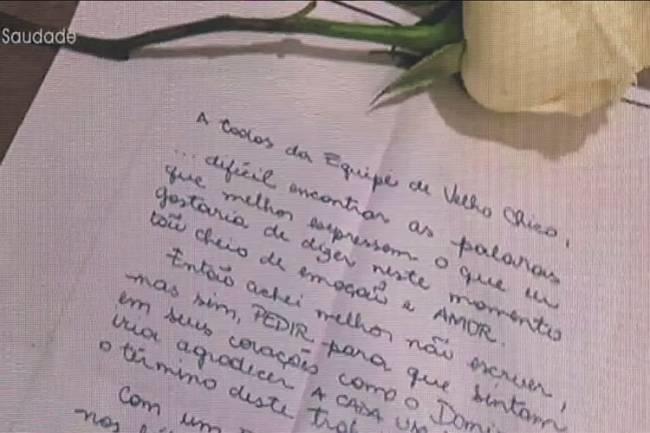 Saudade
A todos da Equipe de Velho Chico,
... difícil encontrar as palavras
que melhor expressem o que eu
gostaria de dizer neste momento
tão cheio de emoção e AMOR.
Então achei melhor não escrever,
mas sim, PEDIR para que sintam
em seus corações como o Domin
iria agradecer A CADA UM
o término deste trab
Com um
nos